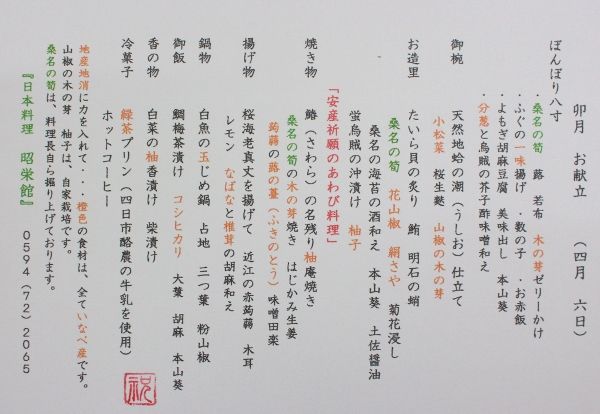 卯月　お献立　（四月　六日）
ぼんぼり八寸
・桑名の筍　蕗　若布　木の芽ゼリーかけ
・ふぐの一味揚げ　・数の子　・お赤飯
・よもぎ胡麻豆腐　美味出し　本山葵
・分葱と烏賊の芥子酢味噌和え
御椀　天然地蛤の潮（うしお）仕立て
小松菜　桜生麩　山椒の木の芽
お造里　たいら貝の炙り　鮪　明石の蛸
桑名の筍　花山椒　絹さや　菊花浸し
桑名の海苔の酒和え　本山葵　土佐醤油
蛍烏賊の沖漬け　柚子
「安産祈願のあわび料理」
焼き物　鰆（さわら）の名残り柚庵焼き
桑名の筍の木の芽焼き　はじかみ生姜
蒟蒻の蕗の薹（ふきのとう）味噌田楽
揚げ物　桜海老真丈を揚げて　近江の赤蒟蒻　木耳
レモン　なばなと椎茸の胡麻和え
鍋物　白魚の玉じめ鍋　占地　三つ葉　粉山椒
御飯　鯛梅茶漬け　コシヒカリ　大葉　胡麻　本山葵
香の物　白菜の柚香漬け　柴漬け
冷菓子　緑茶プリン（四日市酪農の牛乳を使用）
ホットコーヒー
地産地消に力を入れて・・・橙色の食材は、全ていなべ産です。
山椒の木の芽　柚子は、自家栽培です。
桑名の筍は、料理長自ら掘り上げております。
『日本料理　昭栄館』　0594（72）2065
祝